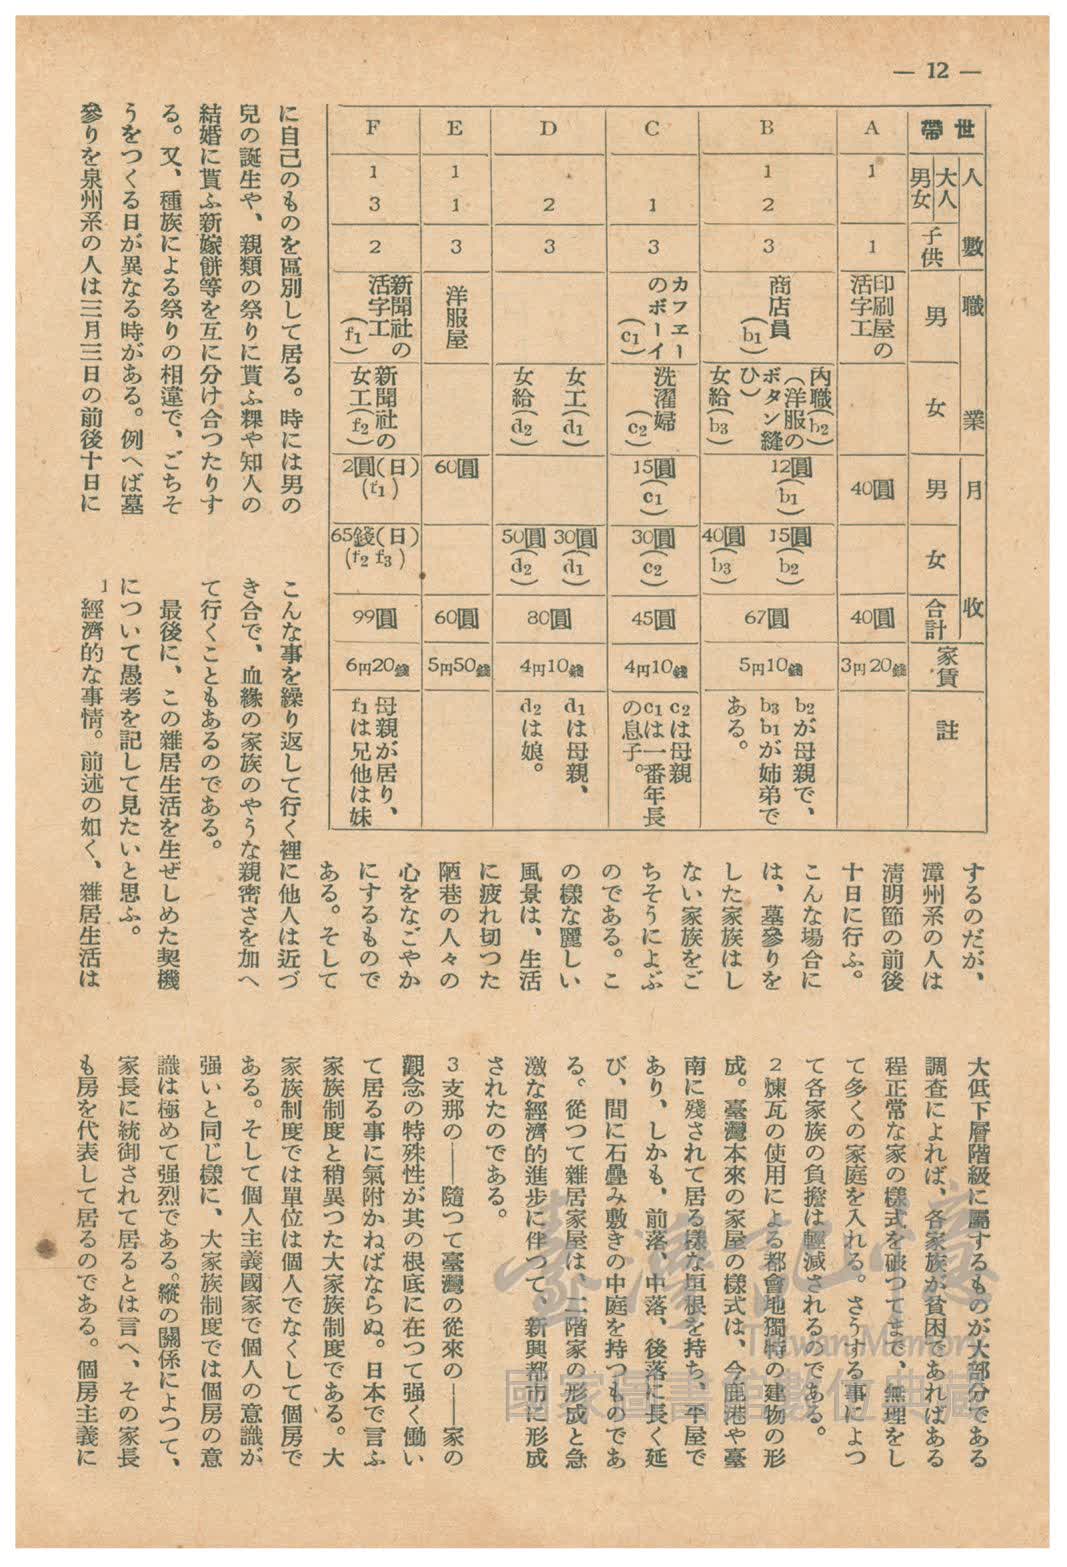 — 12 —
世帶
人數
大人
男女
子供
職業
男
女
月收
男
女
合計
家賃
註
A
1
1
印刷屋の
活字工
40圓
40圓
3円20錢
B
1
2
3
商店員
(b1)
内職(b2)
(洋服の
ボタン縫
ひ)
女給(b3)
12圓
(b1)
15圓
(b2)
40圓
(b3)
67圓
5円10錢
b2が母親で、
b3 b1が姉弟で
ある。
C
1
3
カフエー
のボーイ
(c1)
洗濯婦
(c2)
15圓
(c1)
30圓
(c2)
45圓
4円10錢
c2は母親
c1は一番年長
の息子。
D
2
3
女工(d1)
女給(d2)
30圓
(d1)
50圓
(d2)
80圓
4円10錢
d1は母親、
d2は娘。
E
1
1
3
洋服屋
60圓
60圓
5円50錢
F
1
3
2
新聞社の
活字工
(f1)
新聞社の
女工(f2)
2圓(日)
(f1)
65錢(日)
(f2 f3)
99圓
6円20錢
母親が居り、
f1は兄他は妹
に自己のものを區別して居る。時には男の
兒の誕生や、親類の祭りに貰ふ粿や知人の
結婚に貰ふ新嫁餅等を互に分け合つたりす
る。又、種族による祭りの相違で、ごちそ
うをつくる日が異なる時がある。例へば墓
參りを泉州系の人は三月三日の前後十日に
するのだが、
漳州系の人は
淸明節の前後
十日に行ふ。
こんな場合に
は、墓參りを
した家族はし
ない家族をご
ちそうによぶ
のである。こ
の樣な麗しい
風景は、生活
に疲れ切つた
陋巷の人々の
心をなごやか
にするもので
ある。そして
こんな事を繰り返して行く裡に他人は近づ
き合で、血緣の家族のやうな親密さを加へ
て行くこともあるのである。
最後に、この雜居生活を生ぜしめた契機
について愚考を記して見たいと思ふ。
1 經濟的な事情。前述の如く、雜居生活は
大低下層階級に屬するものが大部分である
調査によれば、各家族が貧困であればある
程正常な家の樣式を破つてまで、無理をし
て多くの家庭を入れる。さうする事によつ
て各家族の負擔は輕減されるのである。
2 煉瓦の使用による都會地獨特の建物の形
成。臺灣本來の家屋の樣式は、今鹿港や臺
南に殘されて居る樣な垣根を持ち、平屋で
あり、しかも、前落、中落、後落に長く延
び、間に石疊み敷きの中庭を持つものであ
る。從つて雜居家屋は、二階家の形成と急
激な經濟的進步に伴つて、新興都市に形成
されたのである。
3 支那の——隨つて臺灣の從來の——家の
觀念の特殊性が其の根底に在つて强く働い
て居る事に氣附かねばならぬ。日本で言ふ
家族制度と稍異つた大家族制度である。大
家族制度では單位は個人でなくして個房で
ある。そして個人主義國家で個人の意識が
强いと同じ樣に、大家族制度では個房の意
識は極めて强烈である。縱の關係によつて、
家長に統御されて居るとは言へ、その家長
も房を代表して居るのである。個房主義に
臺灣記憶
Taiwan Memory
國家圖書館數位典藏